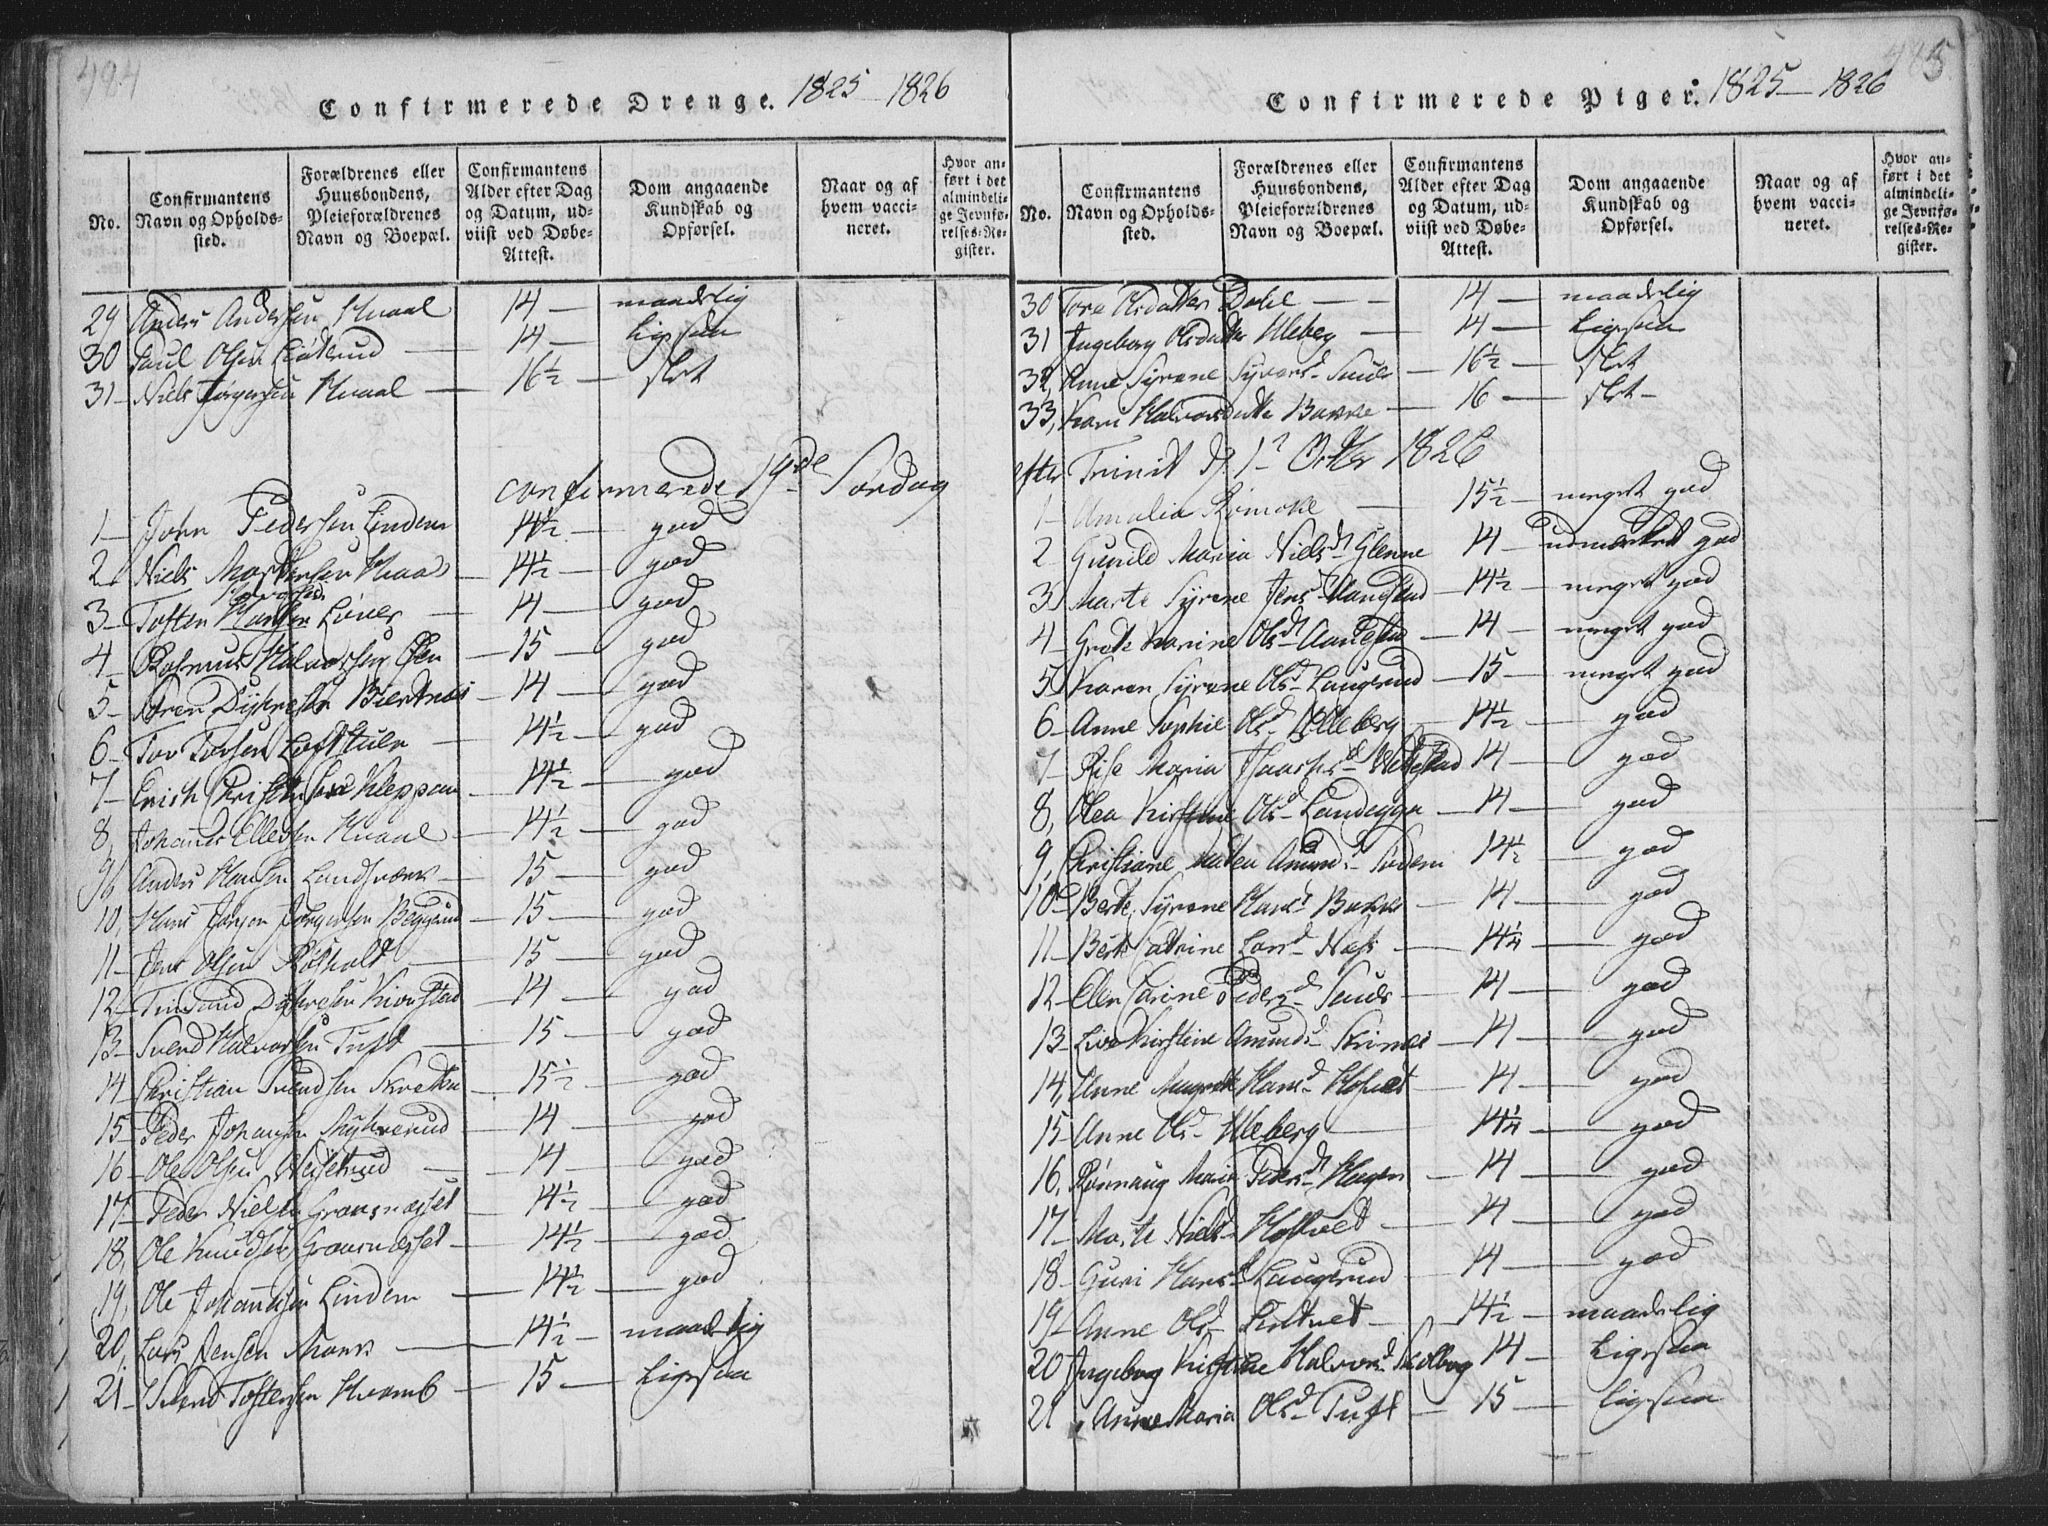 494
Confirmerede Drenge. 1825-1826
No.
Confirmantens Navn og Opholds-sted.
Forældrenes eller Huusbondens, Pleieforældrenes Navn og Boepæl.
Confirmantens Alder efter Dag og Datum, ud-viist ved Døbe-Attest.
Dom angaaende Kundskab og Opførsel.
Naar og af hvem vacci-neret.
Hvor an-ført i det almindeli-ge Jevnfø-relses-Re-gister.
29 Anders Andersen Hvaal 14 — maadelig
30 Paul Olsen — 14 — Ligesaa
31 — Niels Jørgensen Hvaal — 16½ — slet
confirmerede 19de Søndag
1 — John Pedersen Lindem 14½ — god
2 Niels Hvaal — 14½ — god
3 — Tosten Hansen — 14 — god
4 — Rasmus Halvorsen — 15 — god
5 — Søren Biertnes — 14 — god
6 — Tov Torsen — 14½ — god
7 — Erich Christensen Kleppen — 14½ — god
8, Johannes Ellefsen Hvaal — 14½ — god
9 Anders Hansen Landsverk — 15 — god
10, Hans Jørgen Jørgensen — 15 — god
11 — Jens Olsen — 15 — god
12 — — 14 — god
13 — Svend Halvorsen Tuft — 15 — god
14 Christian Svendsen Skretten — 15½ — god
15 — Peder Johansen — 14 — god
16 — Ole Olsen — 14 — god
17 — Peder Nielsen — 14½ — god
18, Ole Knudsen — 14½ — god
19, Ole Johannesen Lindem — 14½ — god
20, Lars Jensen Moen — 14½ — maadelig
21 — Svend Tostensen Hvamb — 15 — Ligesaa
495
Confirmerede Piger. 1825 — 1826
No.
Confirmantens Navn og Opholds-sted.
Forældrenes eller Huusbondens, Pleieforældrenes Navn og Boepæl.
Confirmantens Alder efter Dag og Datum, ud-viist ved Døbe-Attest.
Dom angaaende Kundskab og Opførsel.
Naar og af hvem vacci-neret.
Hvor an-ført i det almindeli-ge Jevnfø-relses-Re-gister.
30 Tore Olsdatter Dahl — — 14 — maadelig
31 Ingeborg Olsdatter Ulleberg — 14 — Ligesaa
32, Anne Syrene Syvers — 16½ — slet
33, Kari Halvorsdatter Bakke — 16 — slet —
efter Trinit d. 1 Octbr 1826
1 — Amalia — 15½ — meget god
2 Gunild Maria Nielsd. Glenne 14 — udmærket god
3 Marte Syrene Jensd. — 14½ — meget god
4 — Grete Karine Olsd. — 14 — meget god
5 Karen Syrene Olsd. Laugerud — 15 — meget god
6 — Anne Sophie Olsd. Ulleberg — 14½ — god
7 — Maria 14 — god
8, Olea Kirstine Olsd. — 14 — god
9, Christiane Maren Amundsd. 14½ — god
10 — Berte Syrene Hansd. Bakke — 14 — god
11 — Berte Catrine Larsd. Næss — 14¼ — god
12 — Ellen Carine Pedersd. — 14 — god
13 — Live Kirstine Amundsd. — 14 — god
14, Anne Margrete Hansd. — 14 — god
15 — Anne Olsd. Ulleberg — 14¼ — god
16, Rønnaug Maria Pedersd. Hagen — 14 — god
17 — Marte Nielsd. — 14 — god
18 — Guri Hansd. Laugerud — 14 — god
19 — Anne Olsd. — 14½ — maadelig
20 Ingeborg Kirstine Halvorsd. 14 — Ligesaa
21, Anne Maria Olsd. Tuft — 15 — Ligesaa